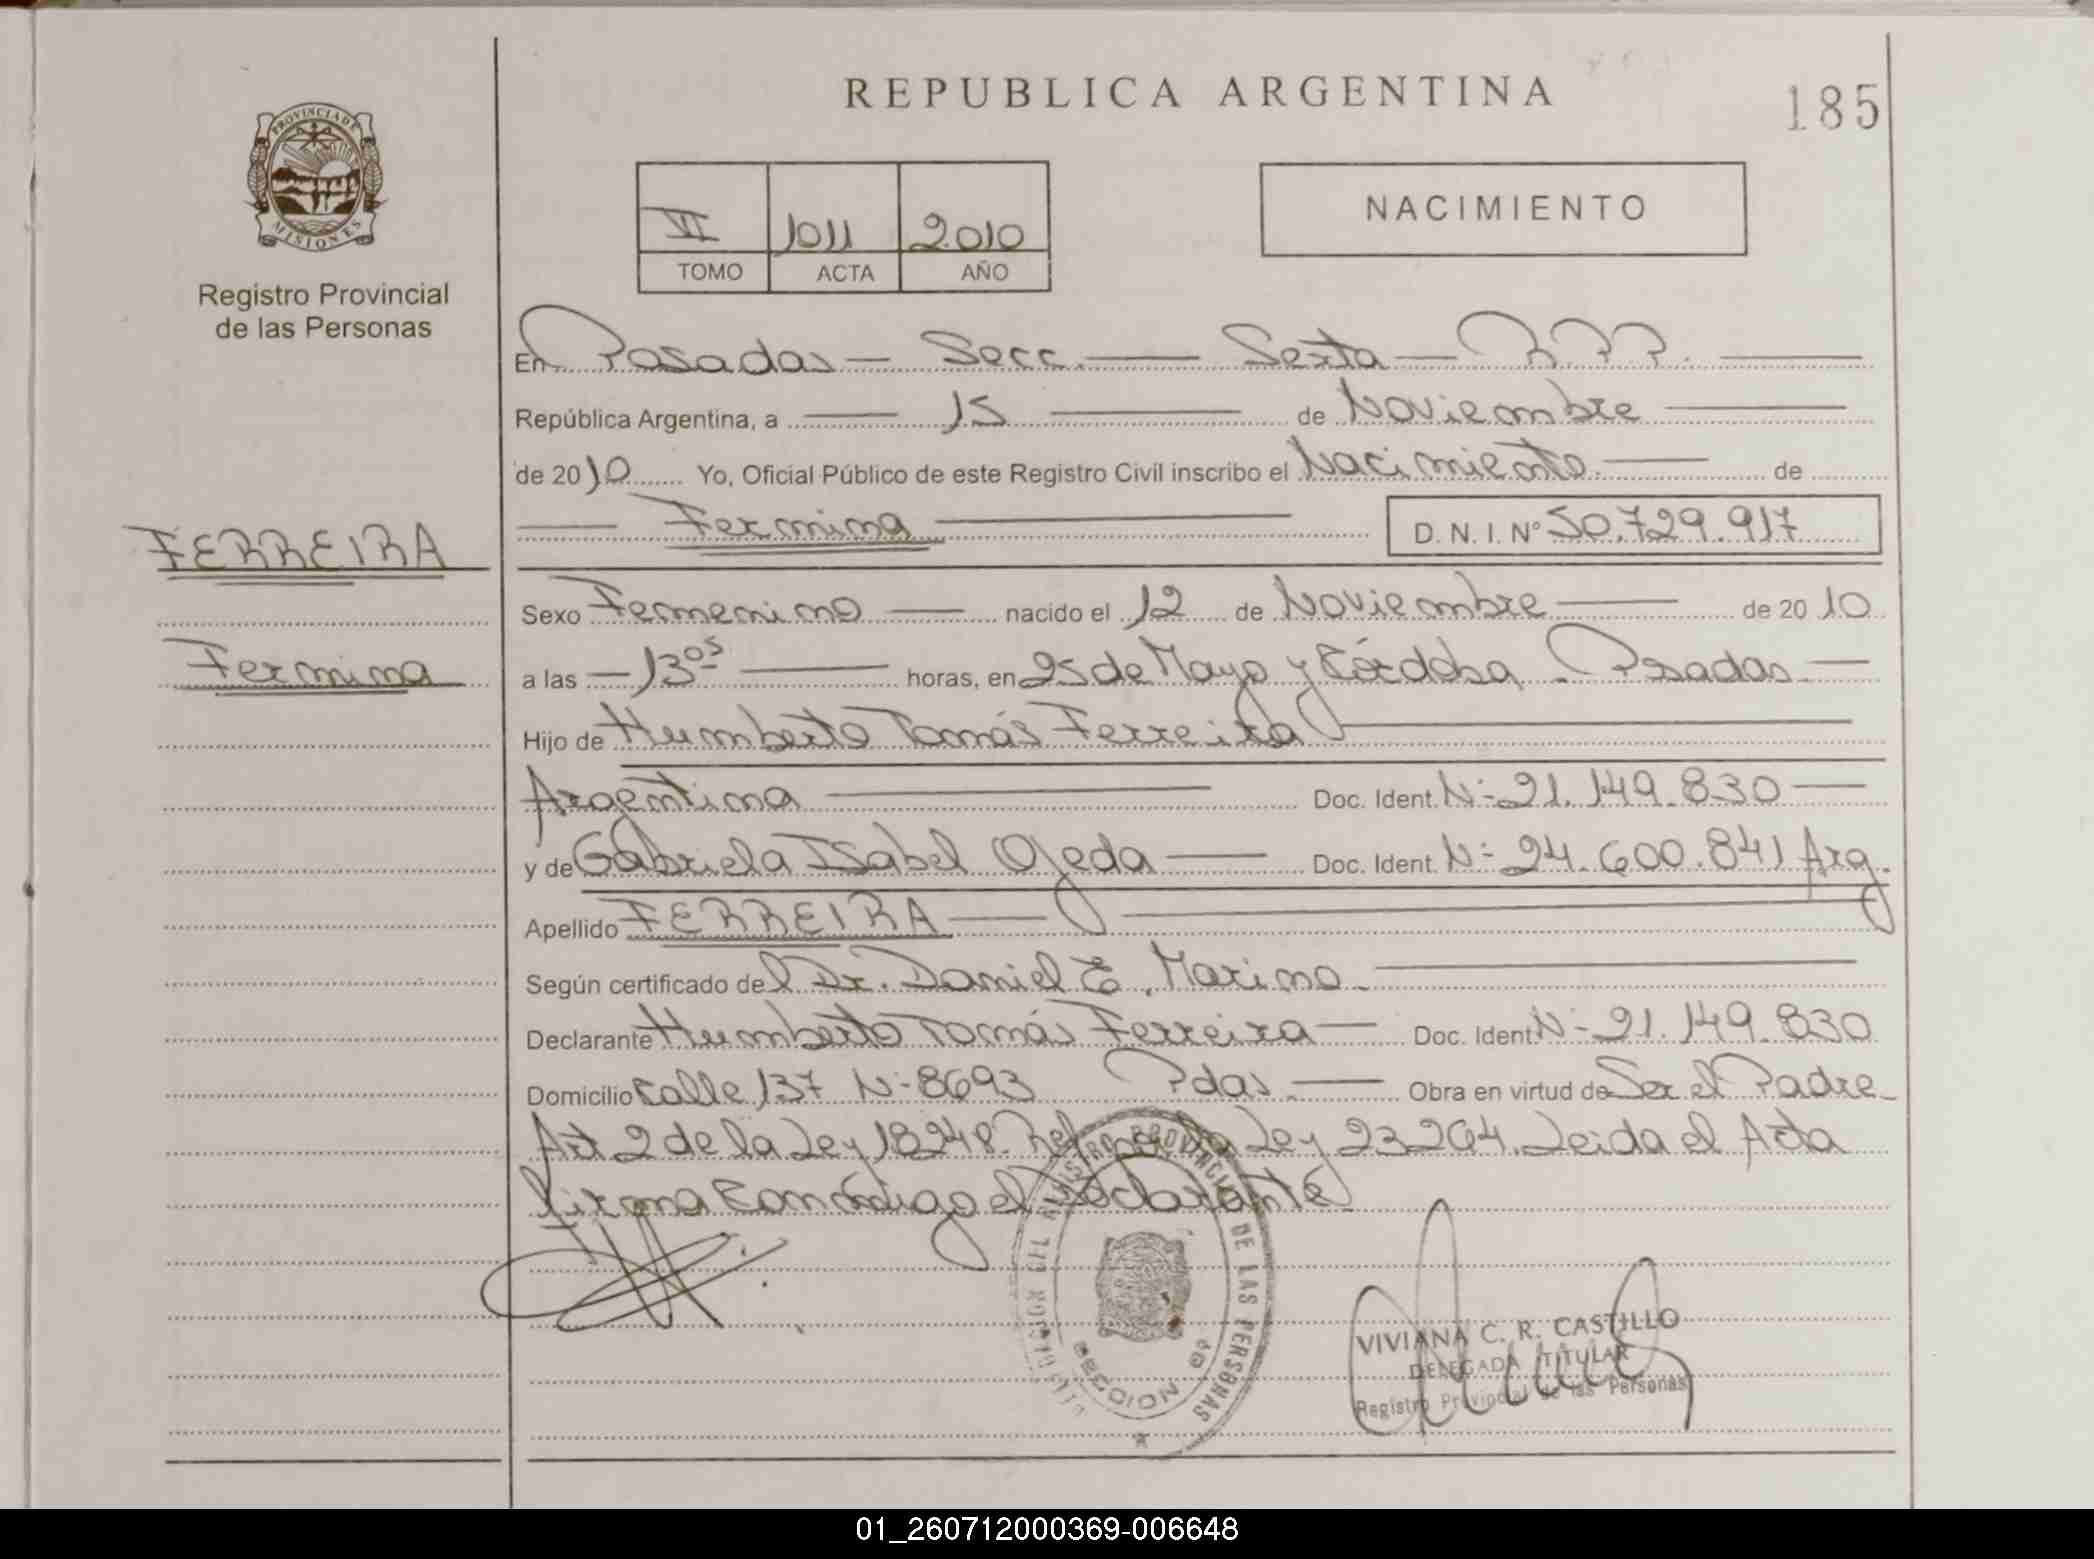 REPUBLICA ARGENTINA
185
PROVINCIA DE
MISIONES
Registro Provincial
de las Personas
VI 1011 2010
TOMO ACTA AÑO
NACIMIENTO
En Posadas — Secc. — Sexta —
República Argentina, a — 15 — de Noviembre —
de 2010 Yo, Oficial Público de este Registro Civil inscribo el Nacimiento — de
— Fermina —
D. N. I. Nº 50.729.917
FERREIRA
Fermina
Sexo Femenino — nacido el 12 de Noviembre — de 2010
a las — 13 05 — horas, en 25 de Mayo y Córdoba - Posadas —
Hijo de Humberto Tomás Ferreira —
Argentina — Doc. Ident. Nº 21.149.830 —
y de Gabriela Isabel Ojeda — Doc. Ident. Nº 24.600.841 Arg.
Apellido FERREIRA —
Según certificado del Dr. Daniel E. Marino —
Declarante Humberto Tomás Ferreira — Doc. Ident. Nº 21.149.830
Domicilio Calle 137 Nº 8693 Pdas. — Obra en virtud de Ser el Padre
Art 2 de la Ley 18248. Ley 23264. Leida el Acta
firma conmigo el declarante
REGISTRO PROVINCIAL DE LAS PERSONAS
VIVIANA C. R. CASTILLO
DELEGADA TITULAR
Registro Provincial de las Personas
01_260712000369-006648